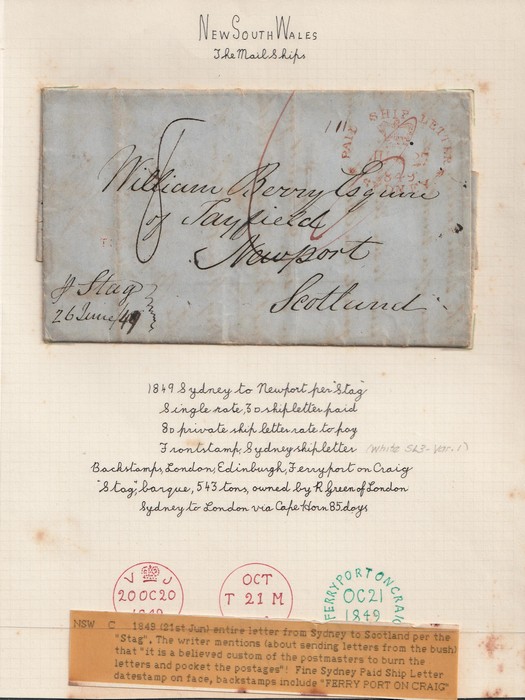 New South Wales
The Mail Ships
PAID SHIP LETTER
1849
SYDNEY
William Berry Esquire
of Tayfield
Newport
Scotland
p Stag
26 June/49
1849 Sydney to Newport per "Stag"
Single rate, 3D ship letter paid
8D private ship letter rate to pay
Frontstamp, Sydney ship letter (White SL3-Var.1)
Backstamps, London, Edinburgh, Ferryport on Craig
"Stag", barque, 543 tons, owned by R. Green of London
Sydney to London via Cape Horn 85 days
V J
20 OC 20
1849
OCT
T 21 M
FERRYPORT ON CRAIG
OC 21
1849
NSW C 1849 (21st Jun) entire letter from Sydney to Scotland per the
"Stag", The writer mentions (about sending letters from the bush)
that "it is a believed custom of the postmasters to burn the
letters and pocket the postages"! Fine Sydney Paid Ship Letter
datestamp on face, backstamps include "FERRY PORT ON CRAIG"